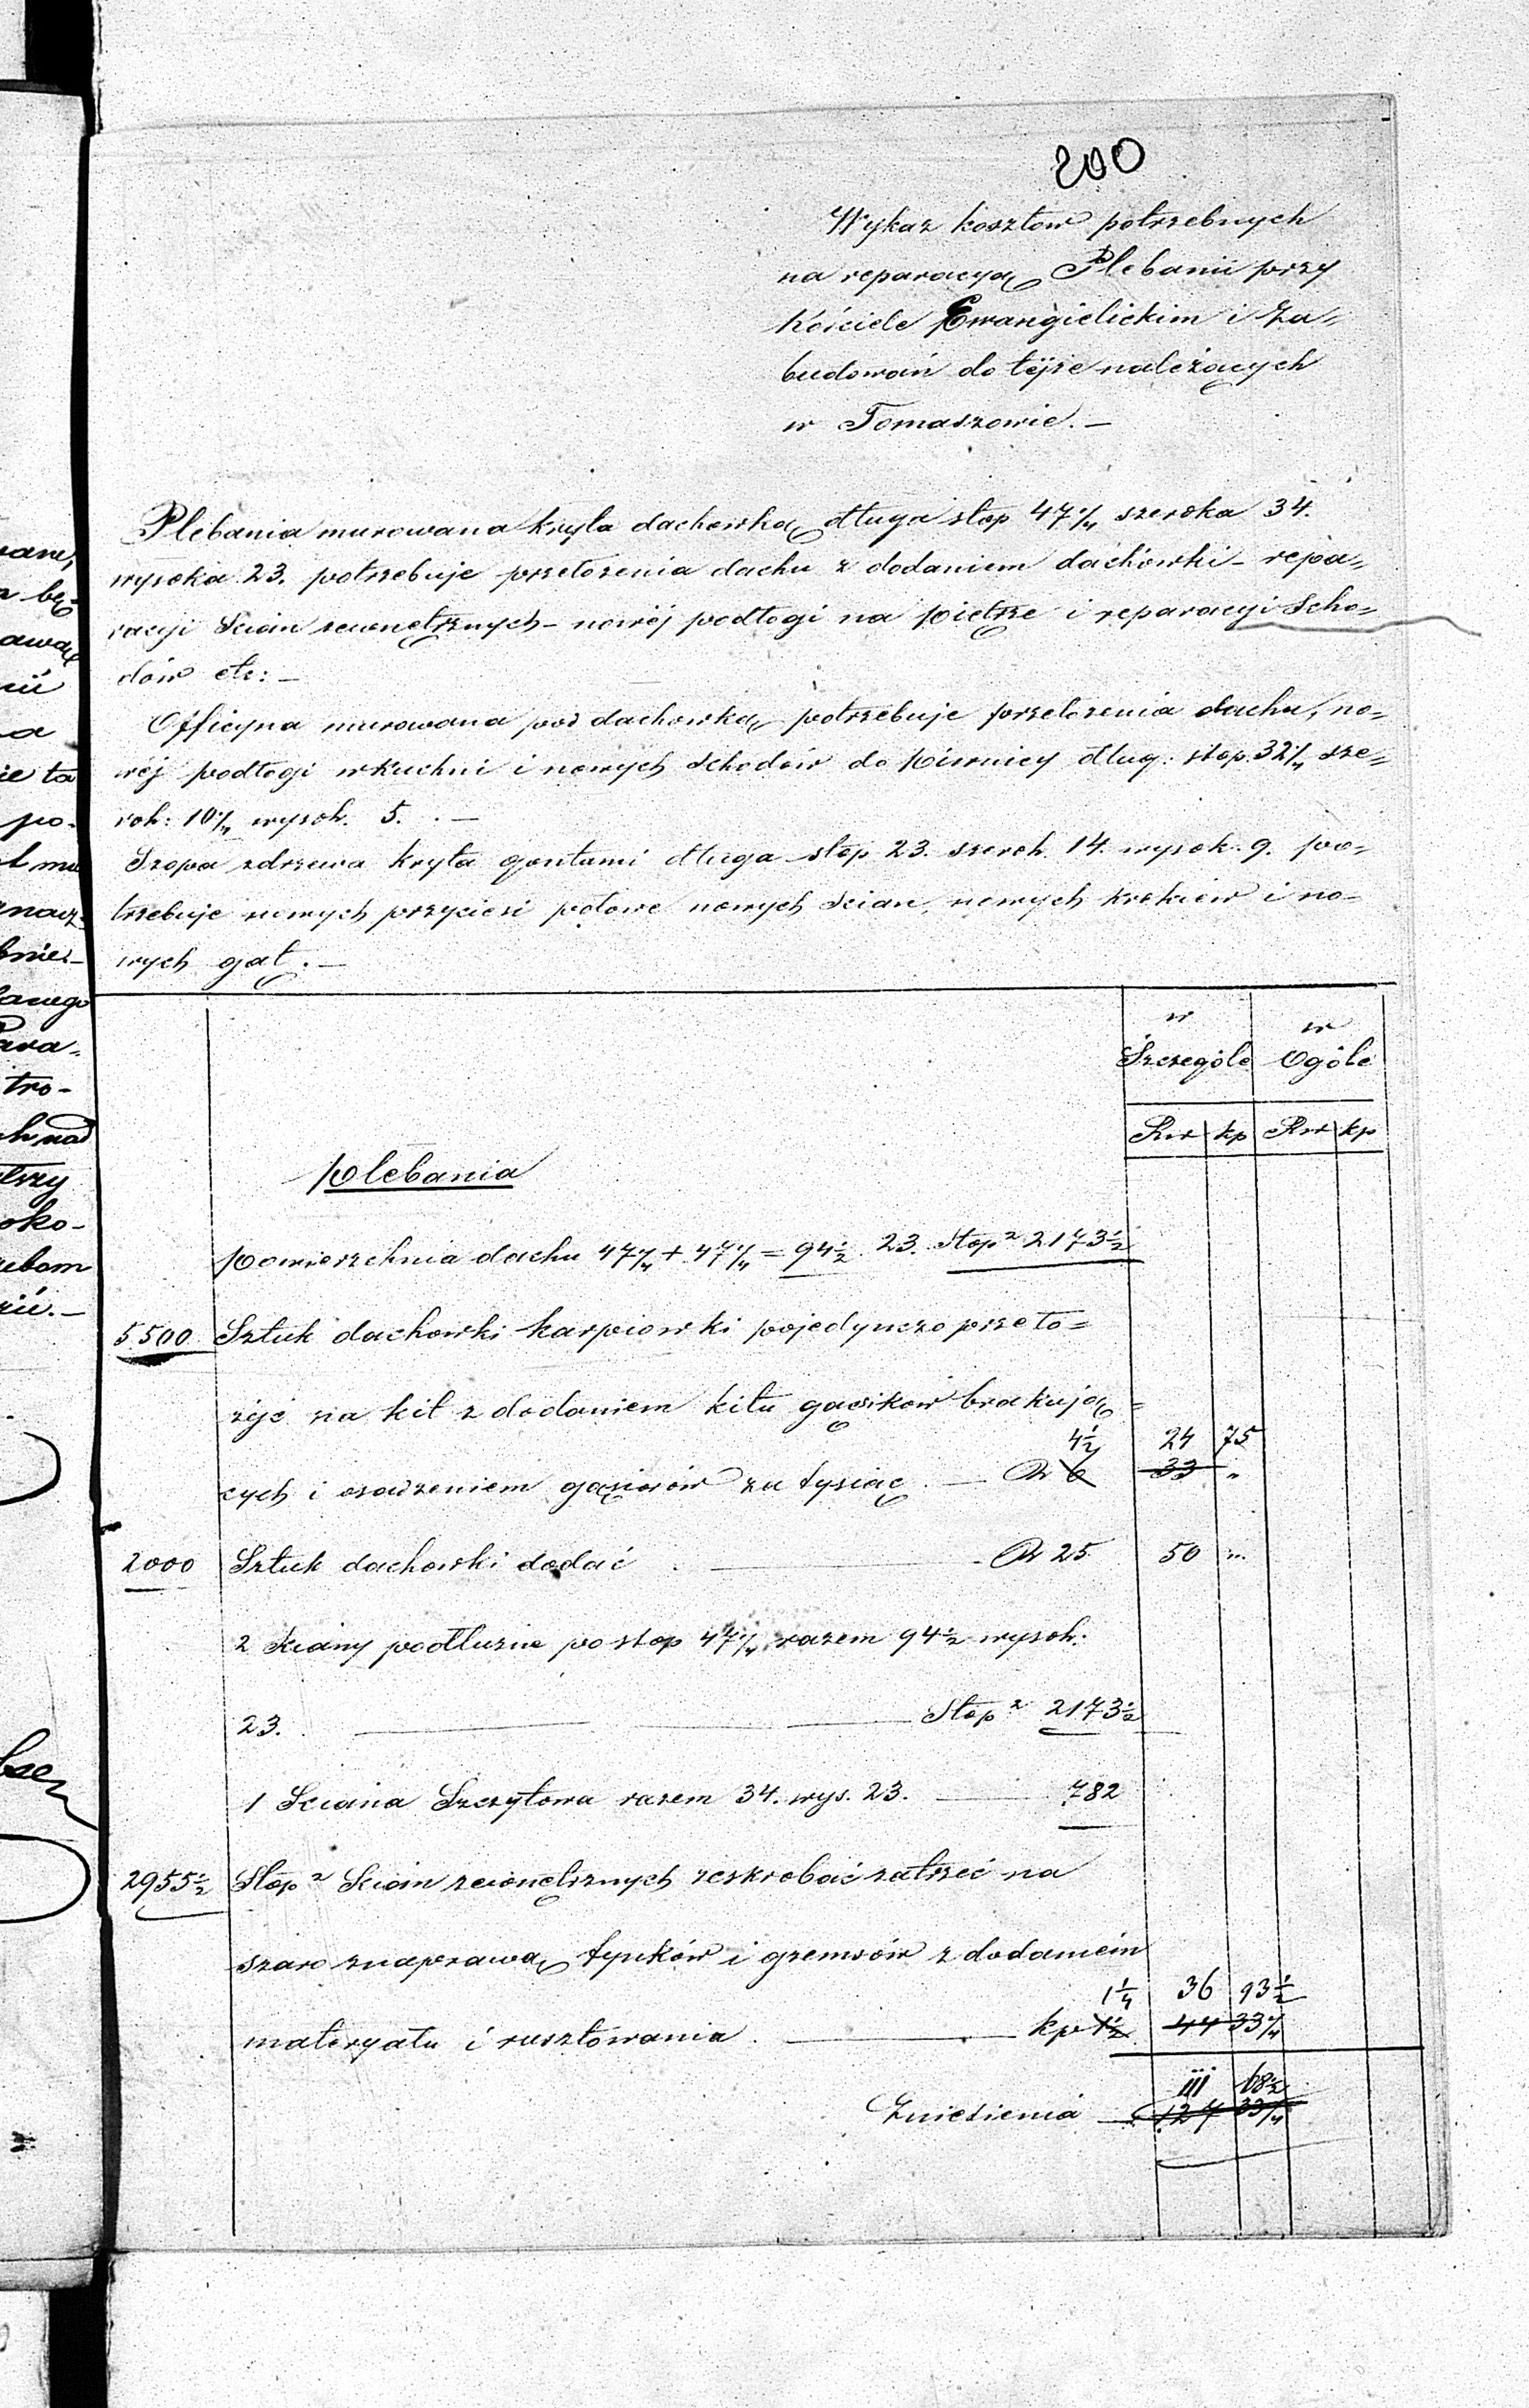 200
Wykaz kosztow potrzebnych
na reparacyą Plebanii przy
Kościele Ewangielickim i Za=
budowań do téjże należących
w Tomaszowie. —
Plebania murowana kryta dachowką długa stop 47 1/4 szeroka 34.
wysoka 23. potrzebuje przełożenia dachu z dodaniem dachówki – repa=
racyi Scian zewnętrznych – nowéj podłogi na piętrze i reparacyi Scho=
dów etc: —
Officyna murowana pod dachowką potrzebuje przełożenia dachu, no=
wéj podłogi w kuchni i nowych Schodów do piwnicy dług: stop. 32 1/4 sze=
rok: 10 1/4 wysok. 5. . —
Szopa zdrzewa kryta gontami długa stop 23. szerok. 14. wysok. 9. po=
trzebuje nowych przyciesi połowe nowych Scian, nowych krokiew i no=
wych gat. —
w Szczególe w Ogóle
Rsr kp Rsr kp
Plebania
Powierzchnia dachu 47 1/4 + 47 1/4 = 94 1/2 . 23. Stop² 2173 1/2
5.500 Sztuk dachowki karpiowki pojedynczo przeło=
żyć na kit z dodaniem kitu gąsikow brakują=
4 1/2 24 75
cych i osadzeniem gąsiorów za tysiąc . — Rs 6 33 "
2000 Sztuk dachowki dodać . — Rs 25 50 "
2 Sciany podłużne po stop 47 1/4 razem 94 1/2 wysok:
23. — Stop² 2173 1/2
1 Sciana Szczytowa razem 34. wys. 23. — 782
2955 1/2 Stop² Scian zewnętrznych zeskrobać zatrzeć na
szaro z naprawą tynków i gzemsów z dodaniem
1 1/4 36 93 1/2
materyału i rusztowania . — kp 1 1/2 44 33 1/4
111 68 1/2
Zniesienia — 127 33 1/4